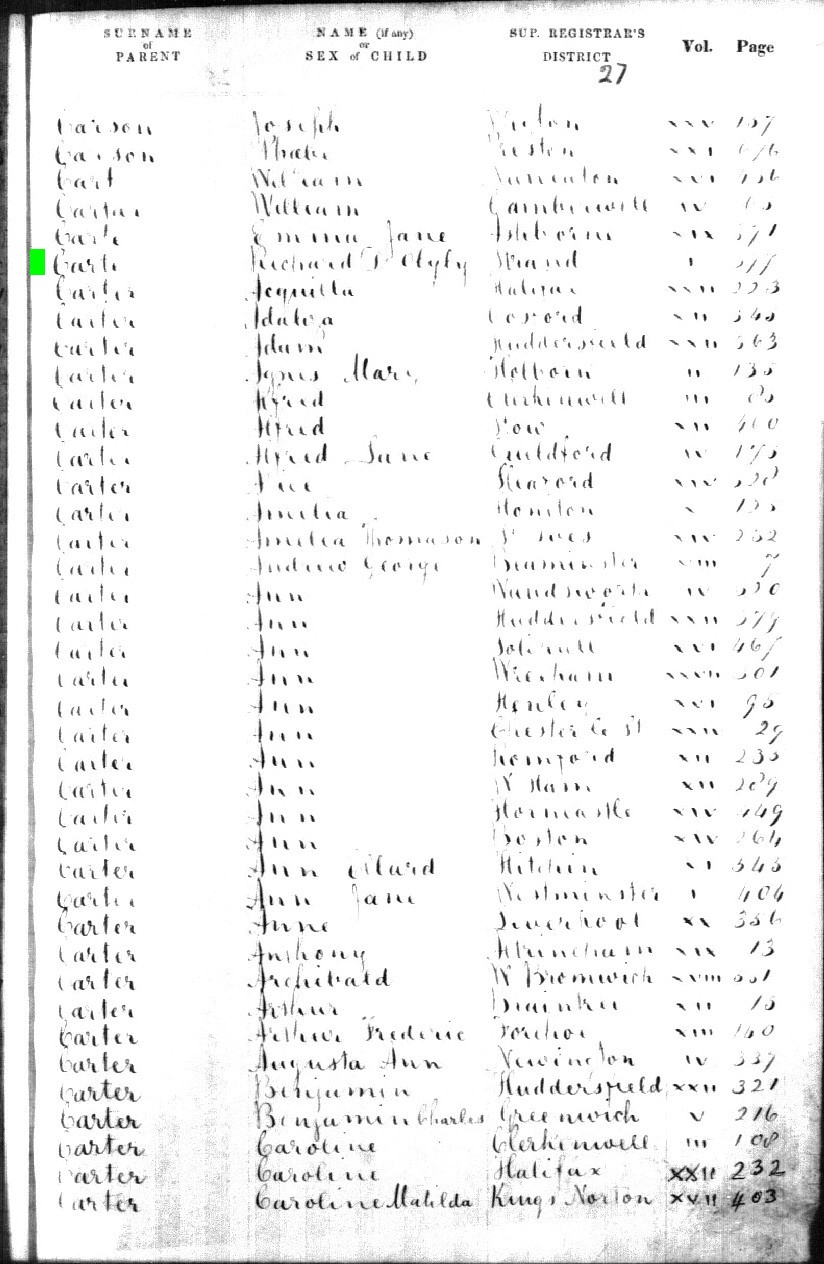 SURNAME of PARENT NAME (if any) or SEX of CHILD SUP. REGISTRAR'S DISTRICT Vol. Page
27
Carson Joseph 157
Carson Preston xxi 676
William Nuneaton xvi
William Camberwell iv
Emma Jane Ashborne xix 371
Richard D'Oyly Strand i
Carter Acquilla Halifax xxii 223
Carter Cosford xii 345
Carter Adam Huddersfield xxii 363
Carter Agnes Mary Holborn ii 135
Carter Alfred Clerkenwell iii
Carter Alfred Bow xii 400
Carter Alfred Lane Guildford iv 175
Carter Sleaford xiv 528
Carter Amelia Honiton x 125
Carter Amelia Thomason St Ives xiv 232
Carter Andrew George Beaminster viii 7
Carter Ann Wandsworth iv
Carter Ann Huddersfield xxii 379
Carter Ann Solihull xvi 467
Carter Ann Wrexham xxvii 301
Carter Ann Henley xvi 95
Carter Ann Chester Le St xxii 29
Carter Ann Romford xii 235
Carter Ann W Ham xii 289
Carter Ann Horncastle xiv 449
Carter Ann Boston xiv 264
Carter Ann Ellard Hitchin vi 545
Carter Ann Jane Westminster i 404
Carter Anne Liverpool xx 356
Carter Anthony Altrincham xix 13
Carter Archibald W Bromwich xviii 551
Carter Arthur Braintree xii 15
Carter Arthur Frederic Forehoe xiii 160
Carter Augusta Ann Newington iv 337
Carter Benjamin Huddersfield xxii 321
Carter Benjamin Charles Greenwich v 216
Carter Caroline Clerkenwell iii 108
Carter Caroline Halifax xxii 232
Carter Caroline Matilda Kings Norton xviii 403